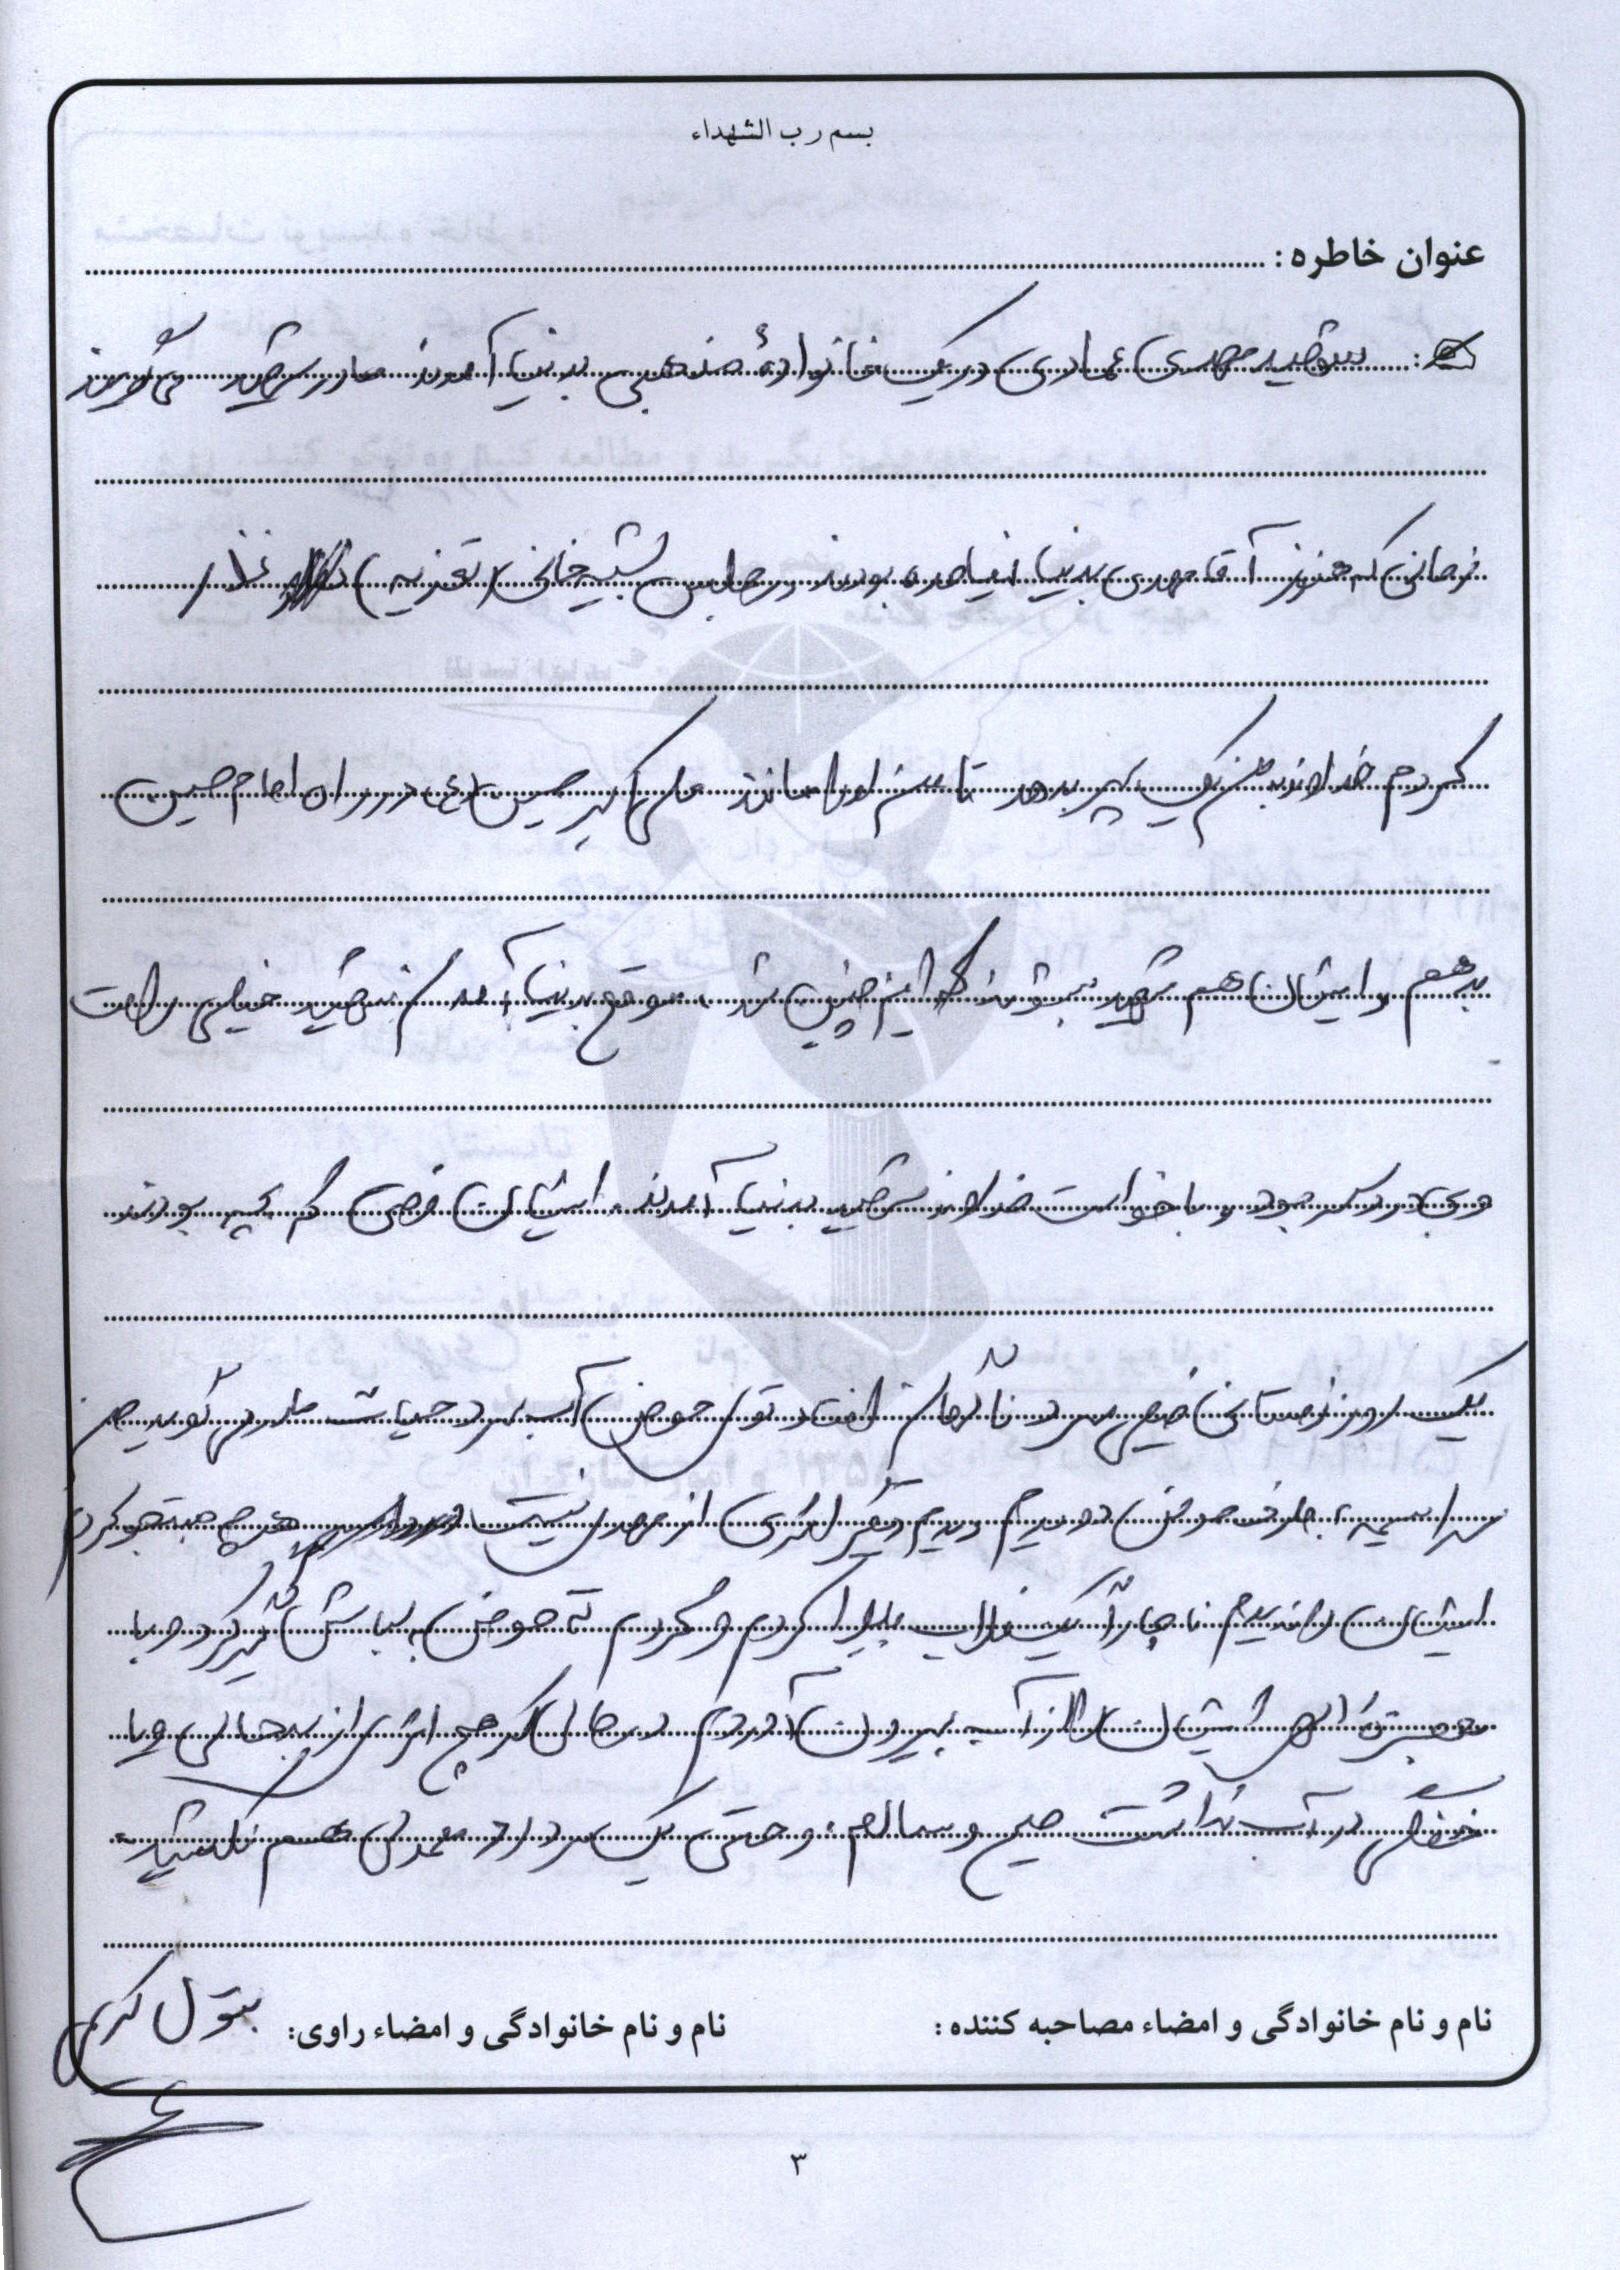 بسم رب الشهداء
عنوان خاطره :
شهید مهدی عمادی در یک خانوادهٔ مذهبی بدنیا آمدند مادر شهید می گویند
زمانی که هنوز آقا مهدی بدنیا نیامده بودند در مجلس شبیه خانی (تعزیه) نذر
کردم خداوند بمن یک پسر بدهد تا من او را مانند علی اکبر حسین (ع) در راه امام حسین
بدهم و ایشان هم شهید بشوند که این چنین شد، موقع بدنیا آمدن شهید خیلی راحت
و بی درد سر بود و با خواست خداوند شهید بدنیا آمدند. ایشان فرضی کم بچه بودند
یک روز زمستانی خیلی سرد ناگهان افتاد توی حوض آب سرد حیاط مادر می گوید من
سراسیمه بطرف حوض دویدم دیدم دیگر اثری از مهدی نیست هر چه جستجو کردم
ایشان را ندیدم ناچاراً یک قلاب پیدا کردم و کردم ته حوض به لباسش گیر کرد و با
معجزه الهی ایشان را از آب بیرون آوردم در حالی که هیچ اثری از بد حالی و یا
خفگی در آب نداشت صحیح و سالم و حتی یک سر درد معمولی هم نکشید.
نام و نام خانوادگی و امضاء مصاحبه کننده :
نام و نام خانوادگی و امضاء راوی: بتول کریمی
۳